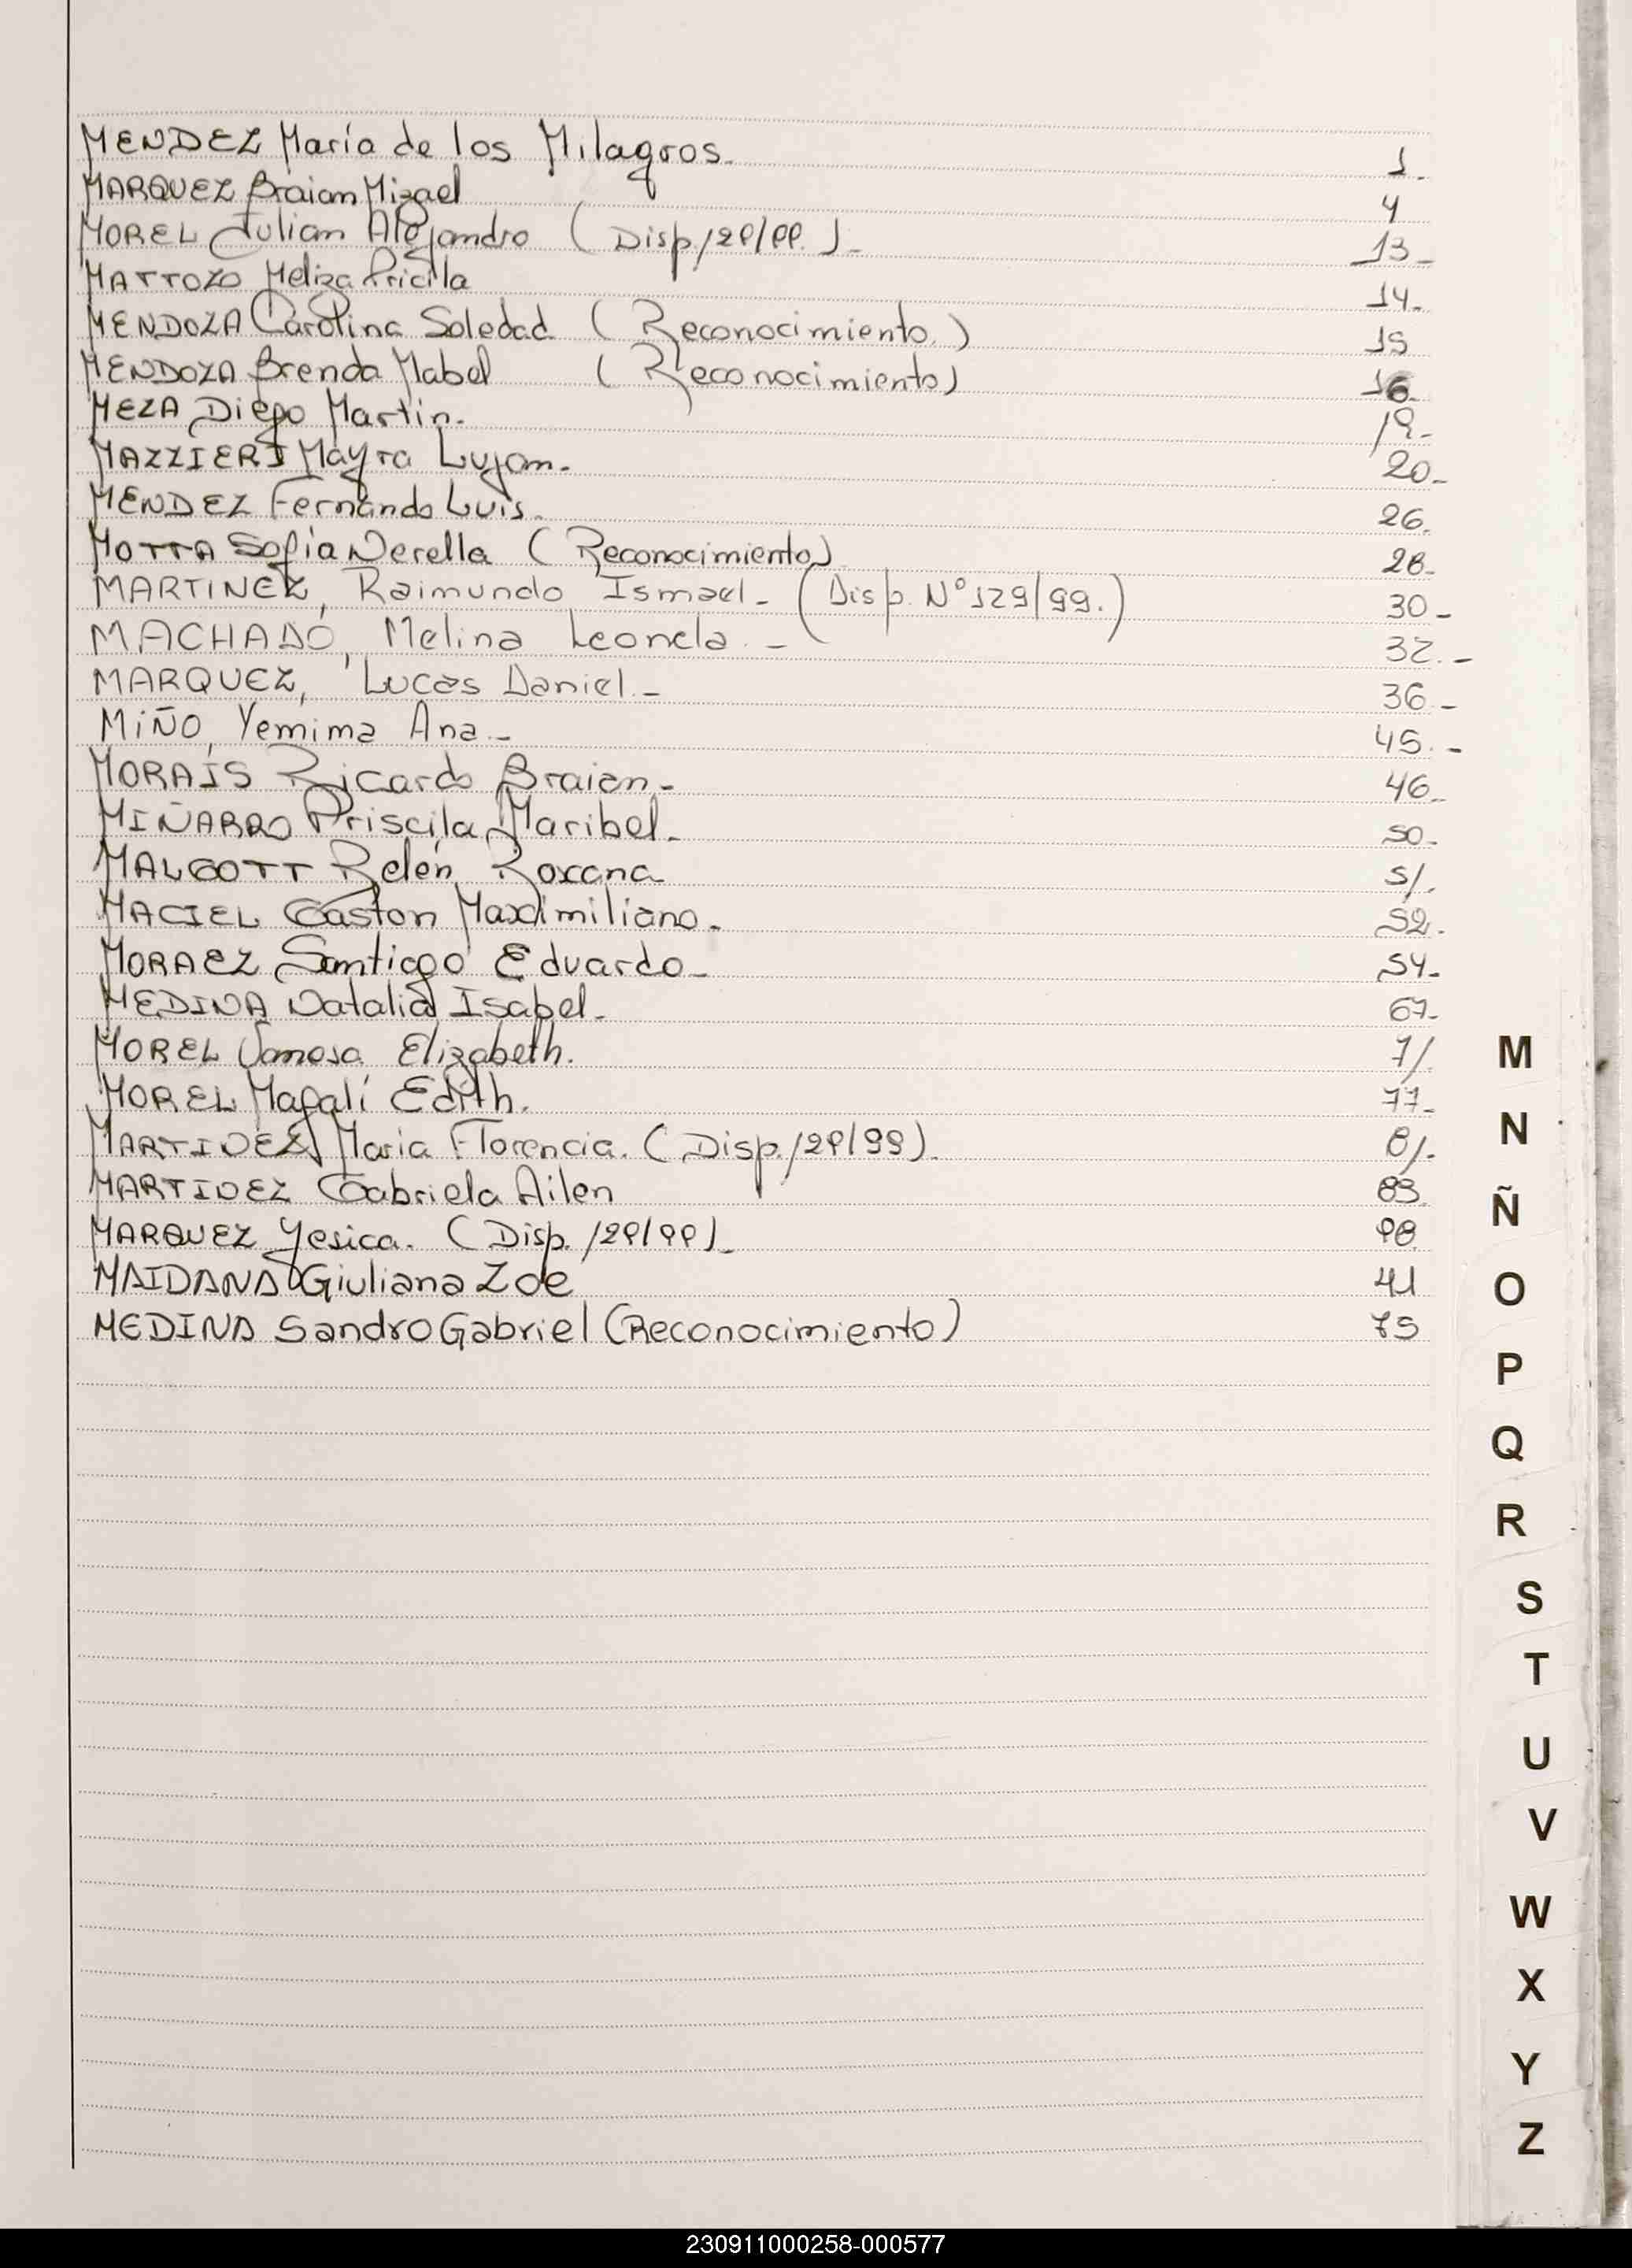 MENDEZ María de los Milagros. 1.
MARQUEZ Braian Mizael 4
MOREL Julian Alejandro (Disp/29/99.)- 13-
MATTOZO Meliza Pricila 14.
MENDOZA Carolina Soledad (Reconocimiento.) 15
MENDOZA Brenda Mabel (Reconocimiento) 16.
MEZA Diego Martin. 19.-
MAZZIERI Mayra Lujan. 20-
MENDEZ Fernando Luis. 26.
MOTTA Sofia Nerella (Reconocimiento) 28.
MARTINEZ, Raimundo Ismael - (Disp. N° 129/99.) 30-
MACHADO, Melina Leonela. - 32.-
MARQUEZ, Lucas Daniel.- 36.-
MiÑO, Yemima Ana.- 45.-
MORAIS Ricardo Braian.- 46-
MIÑARRO Priscila Maribel.- 50-
MALGOTT Belén Roxana 51.
MACIEL Gaston Maximiliano. 52.
MORAEZ Santiago Eduardo- 54-
MEDINA Natalia Isabel- 67-
MOREL Vanesa Elizabeth. 71.
MOREL Magali Edith. 77-
MARTINEZ Maria Florencia. (Disp./29/99). 81.
MARTINEZ Gabriela Ailen 83.
MARQUEZ Yesica. (Disp. 129/99)- 98
MAIDANA Giuliana Zoe 41
MEDINA Sandro Gabriel (Reconocimiento) 75
M
N
Ñ
O
P
Q
R
S
T
U
V
W
X
Y
Z
230911000258-000577